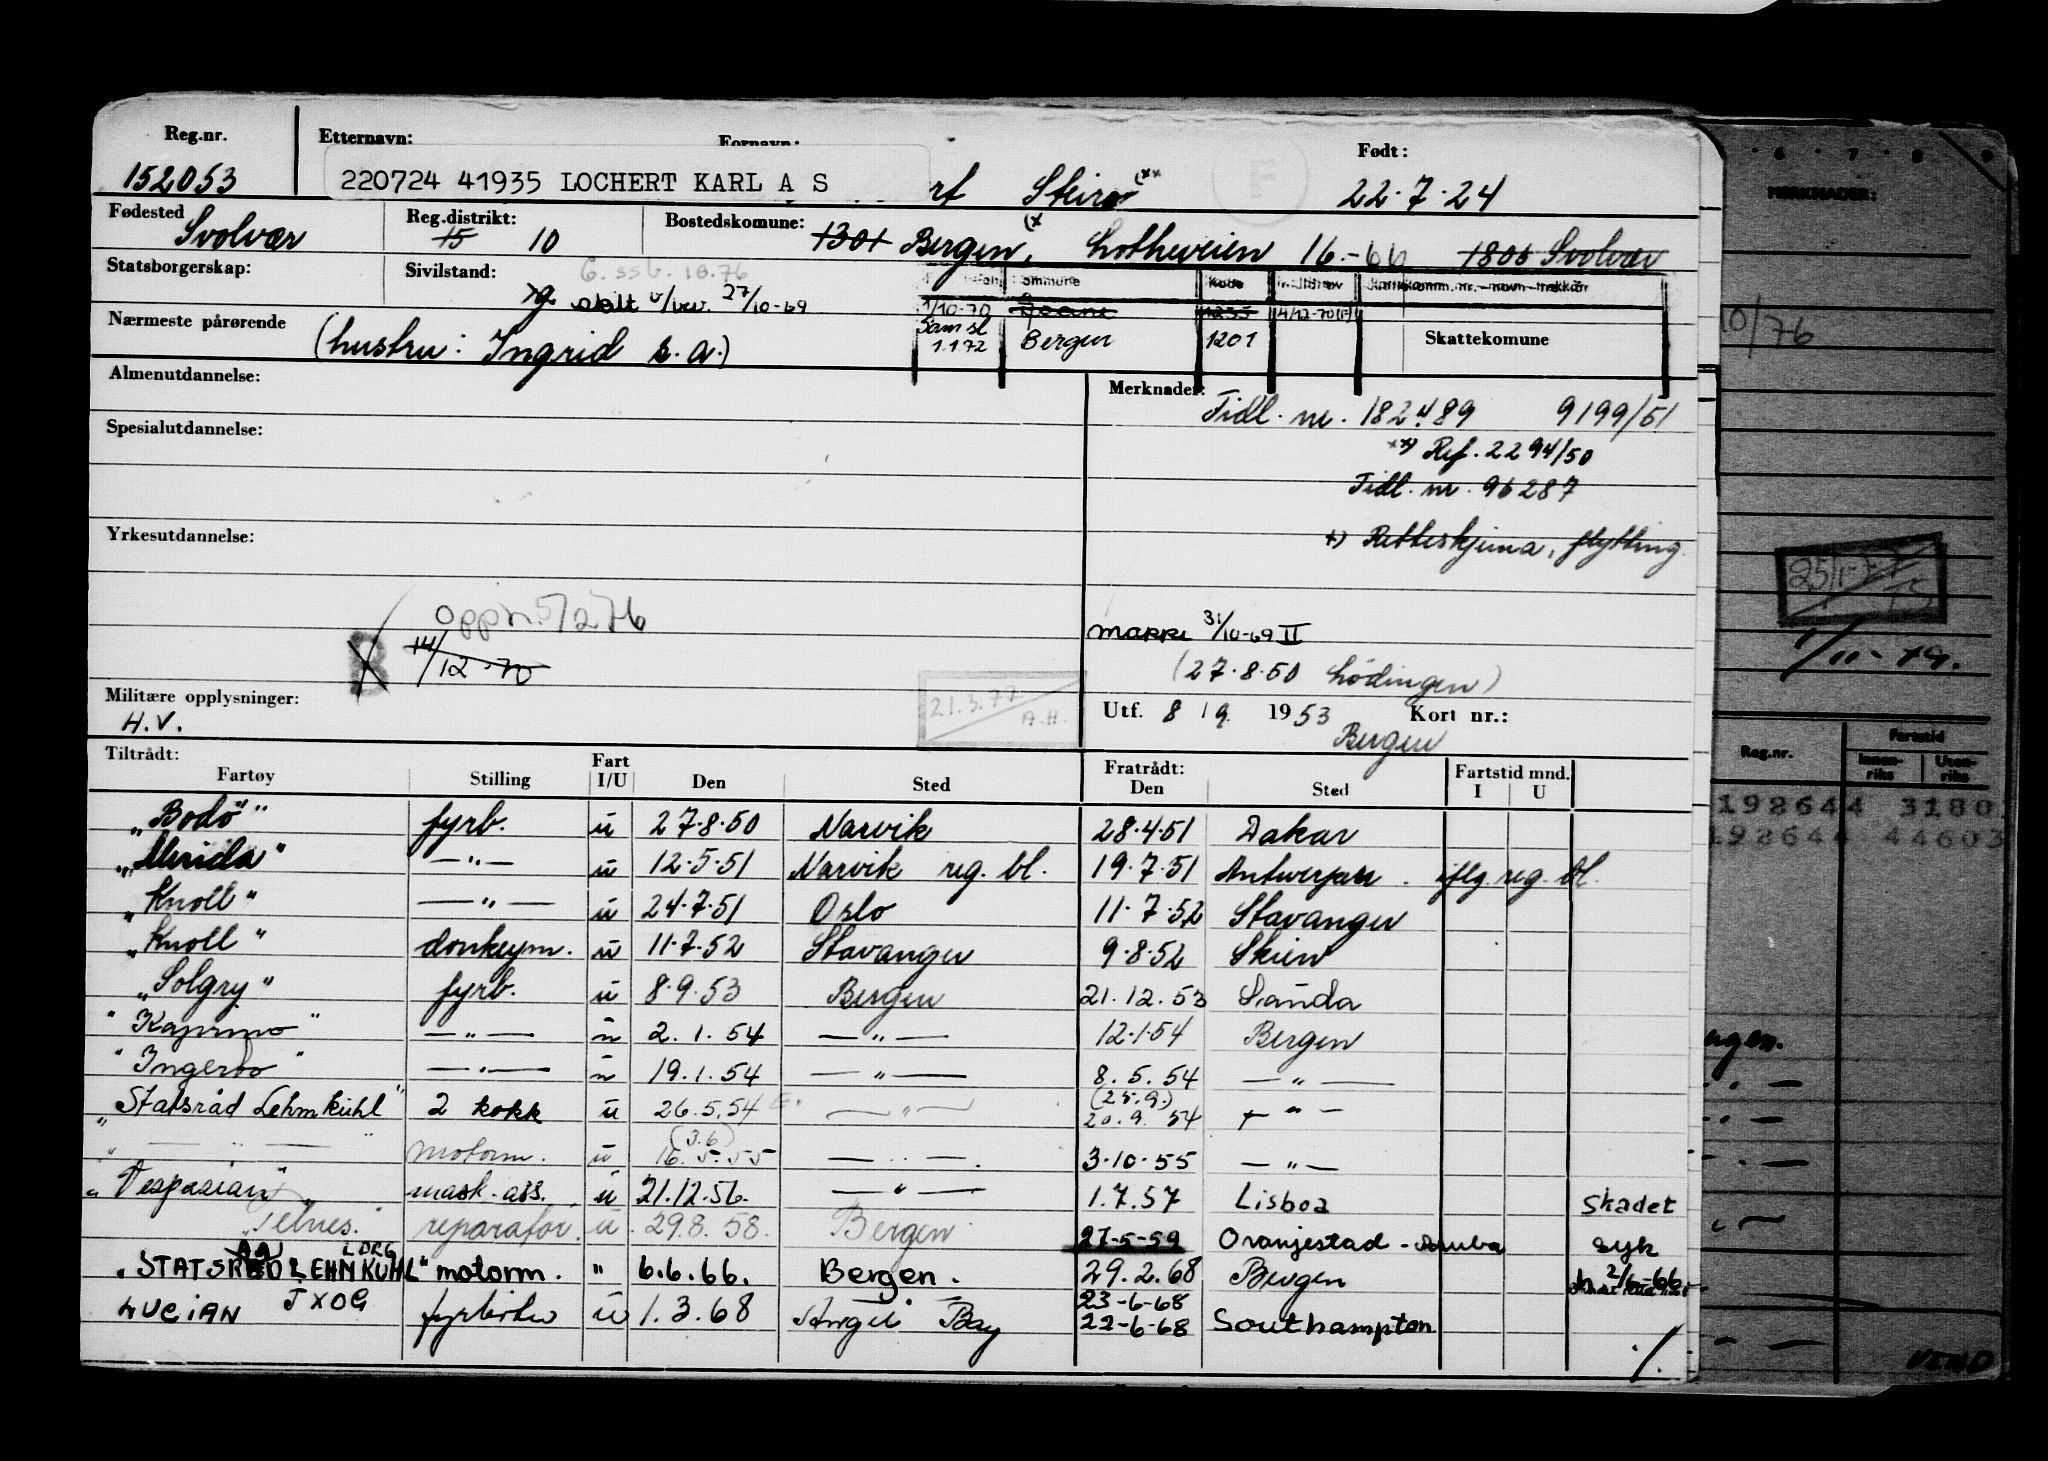 Reg.nr. Etternavn: Fornavn: Født:
152053 220724 41935 LOCHERT KARL A S 22.7.24
Fødested Reg.distrikt: Bostedskomune:
Svolvær 15 10 1301 Bergen, Lotheveien 16.-66 1806 Svolvær
Statsborgerskap: Sivilstand: 6. ssb. 10.76
skilt 27/10-69
1/10-70 1255 4/12-70
Nærmeste pårørende (hustru: Ingrid s.a.) Sam sl 1.1.72 Bergen 1201 Skattekomune
Almenutdannelse: Merknader:
Tidl. nr. 182489 9199/51
Spesialutdannelse: xx) Ref. 2294/50
Tidl. nr. 96287
Yrkesutdannelse: x) Retteskjema, flytting.
Oppn. 5/2 76
B 14/12-70
Makki 31/10-69 II
(27.8.50 Lødingen)
Militære opplysninger: 21.3.77 A.H. Utf. 8/9 1953 Kort nr.:
H.V. Bergen
Tiltrådt: Fratrådt:
Fartøy Stilling Fart I/U Den Sted Den Sted Fartstid mnd. I U
"Bodø" fyrb. u 27.8.50 Narvik 28.4.51 Dakar
"Merida" —"— u 12.5.51 Narvik reg. bl. 19.7.51 Antwerpen. iflg. reg. bl.
"Knoll" —"— u 24.7.51 Oslo 11.7.52 Stavanger
"Knoll" donkeym. u 11.7.52 Stavanger 9.8.52 Skien
"Solgry" fyrb. u 8.9.53 Bergen 21.12.53 Sauda
—"— u 2.1.54 —"— 12.1.54 Bergen
"Ingerto" —"— u 19.1.54 —"— 8.5.54 —"—
"Statsråd Lehmkuhl" 2 kokk u 26.5.54 —"— (25.9.) 20.9.54 —"—
" —"— " motorm. u (3.6) 16.5.55 —"— 3.10.55 —"—
"Vespasian" mask.ass. u 21.12.56. —"— 1.7.57 Lisboa skadet
"Telnes." reparatør. u 29.8.58. Bergen 27-5-59 Oranjestad - Aruba syk
"STATSRÅD LEHMKUHL" LDRG motorm. " 6.6.66. Bergen. 29.2.68 Bergen 2/6-66
LUCIAN JXOG fyrbøter u 1.3.68 Bay 23-6-68 22-6-68 Southampton.
./.
6 7 8 9
MERKNADER:
10/76
25/1-77
1/11-79.
Reg.nr. Fartstid
Innenriks Utenriks
192644 3180
192644 44603
VEND